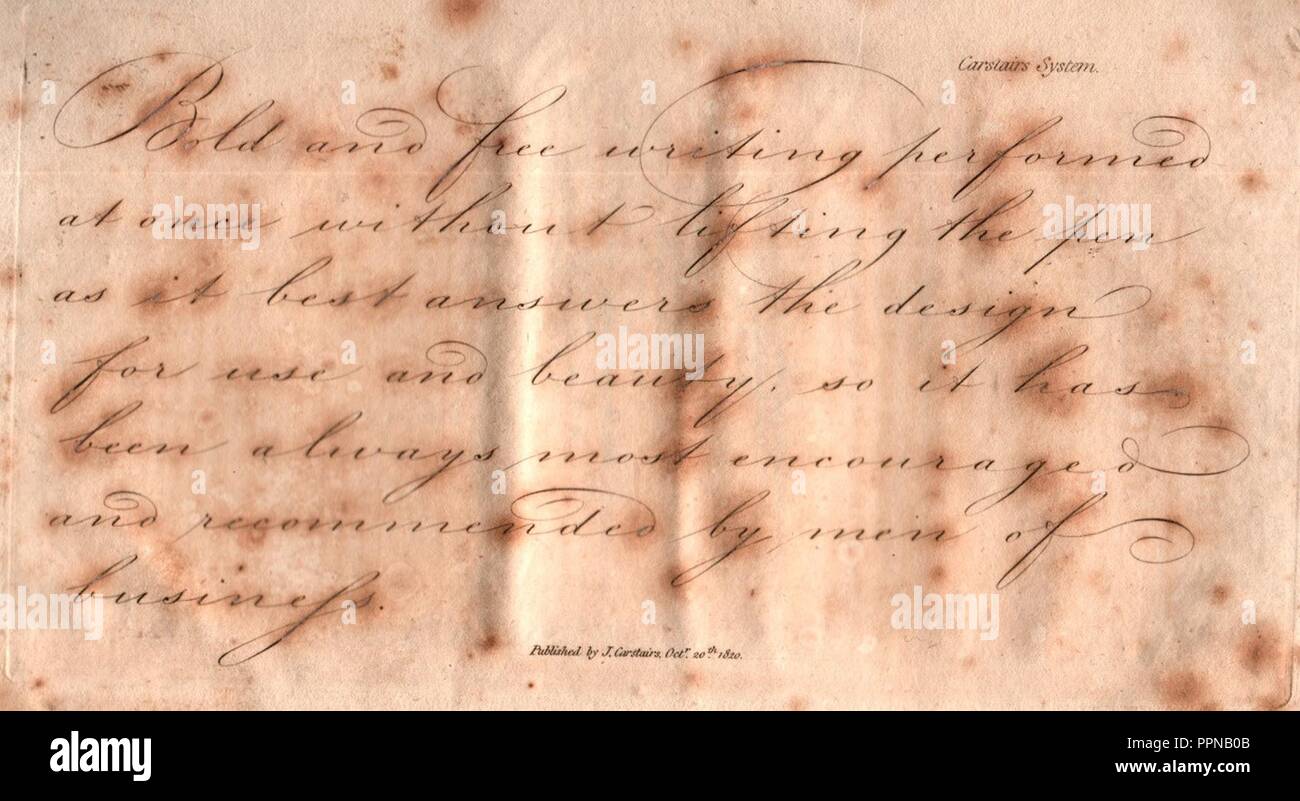 Carstairs System.
Bold and free writing performed
at once without lifting the pen
as it best answers the design
for use and beauty, so it has
been always most encouraged
and recommended by men of
busineſs.
Published by J. Carstairs, Octr. 20th. 1820.
alamy
alamy
alamy
alamy
alamy
a
a
a
a
a
a
a
a
a
a
a
a
alamy
Image ID: PPNB0B
www.alamy.com